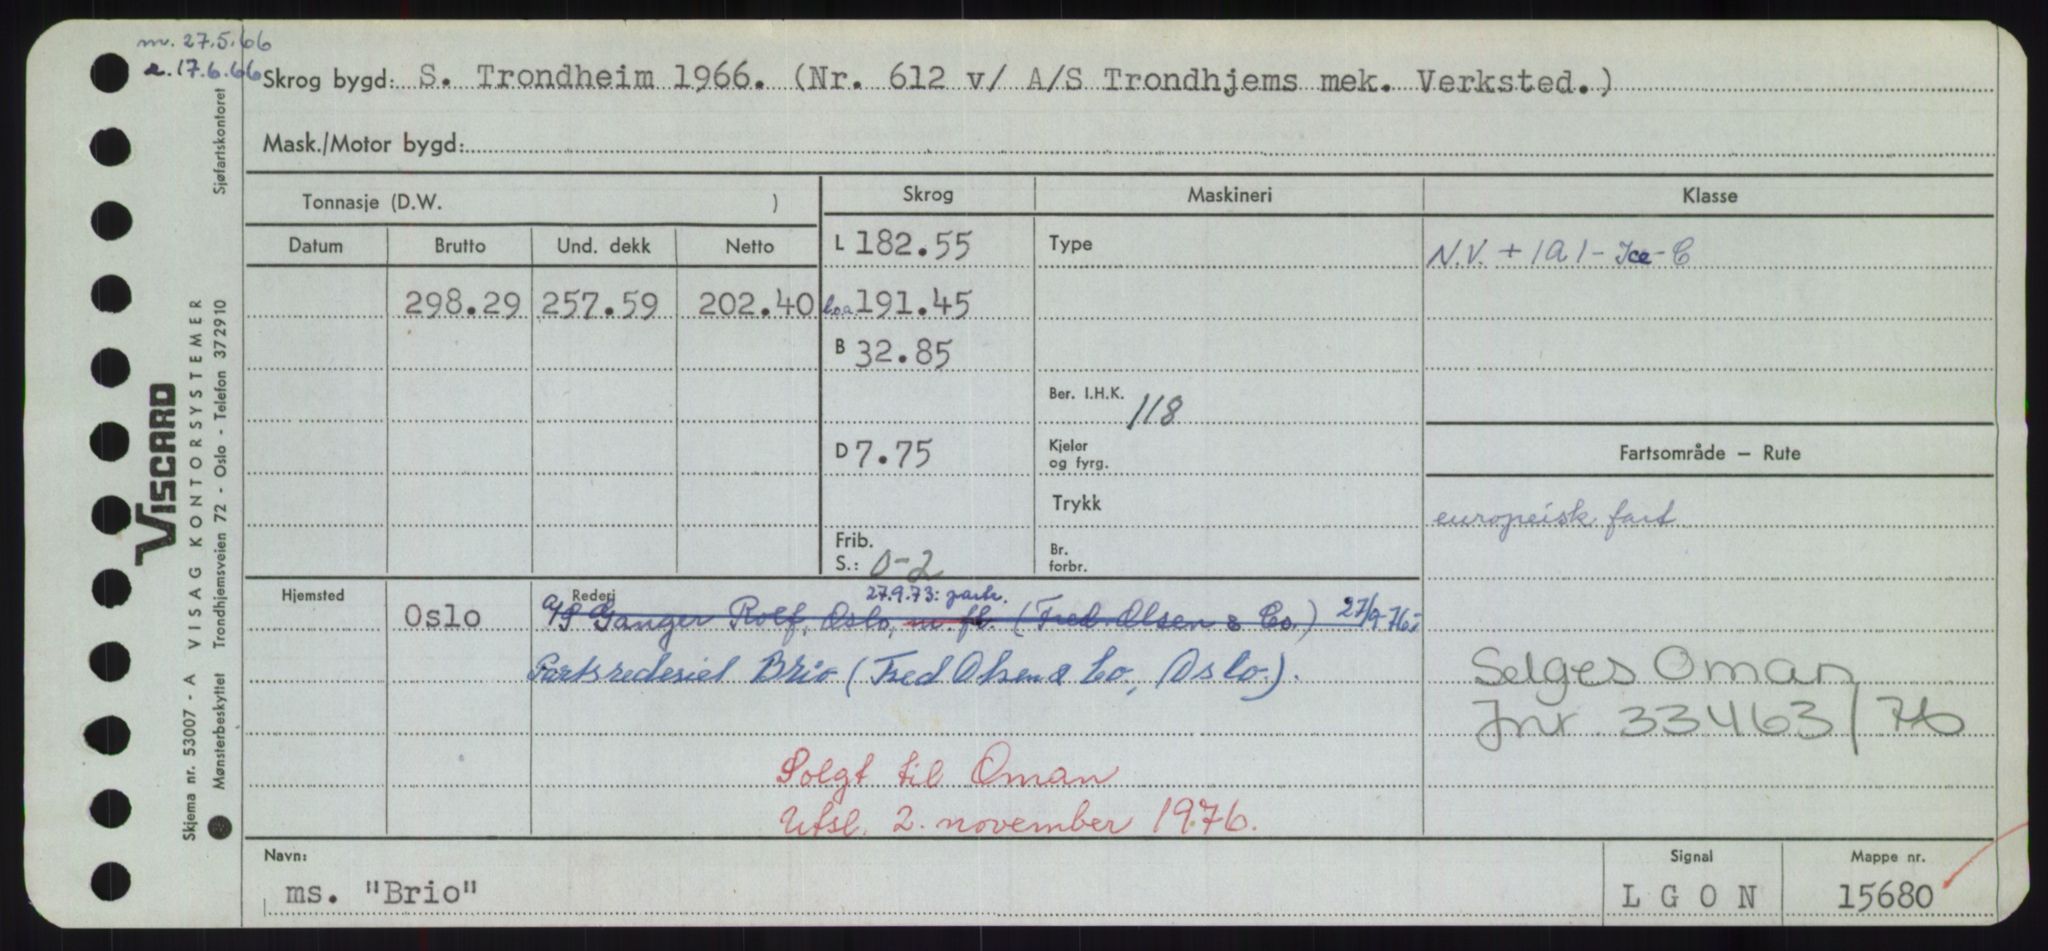 m. 27.5.66
r. 17.6.66
Skrog bygd: S. Trondheim 1966. (Nr. 612 v/ A/S Trondhjems mek. Verksted.)
Mask./Motor bygd:
Tonnasje (D.W. )
Skrog
Maskineri
Klasse
Datum
Brutto
Und. dekk
Netto
L 182.55
Type
N.V. + 1A1 - Ice - C
298.29 257.59 202.40
l.o.a. 191.45
B 32.85
Ber. I.H.K. 118
D 7.75
Kjeler
og fyrg.
Fartsområde — Rute
Trykk
europeisk fart
Frib.
S.: 0-2
Br.
forbr.
Hjemsted
Rederi
27.9.73: partr.
Oslo
A/S Ganger Rolf, Oslo, m. fl. (Fred Olsen & Co.) 27/9-76:
Partsrederiet Brio (Fred Olsen & Co, Oslo.).
Selges Oman
Jnr. 33463/76
Solgt til Oman
Utsl. 2. november 1976.
Navn:
Signal
Mappe nr.
ms. "Brio"
LGON
15680
VISCARD
Skjema nr. 53007 - A VISAG KONTORSYSTEMER
Mønsterbeskyttet Trondhjemsveien 72 - Oslo - Telefon 372910
Sjøfartskontoret